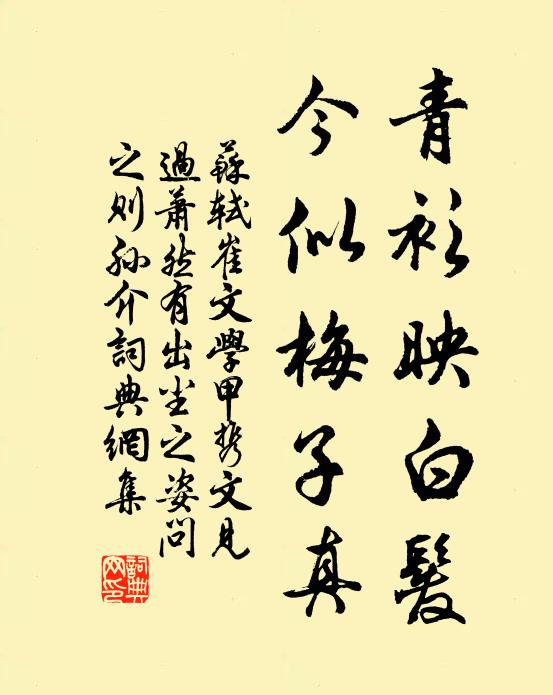 青衫映白髮
今似梅子真
蘇軾崔文學甲攜文見
過蕭然有出塵之姿問
之則孫介詞典網集
詞典
网印